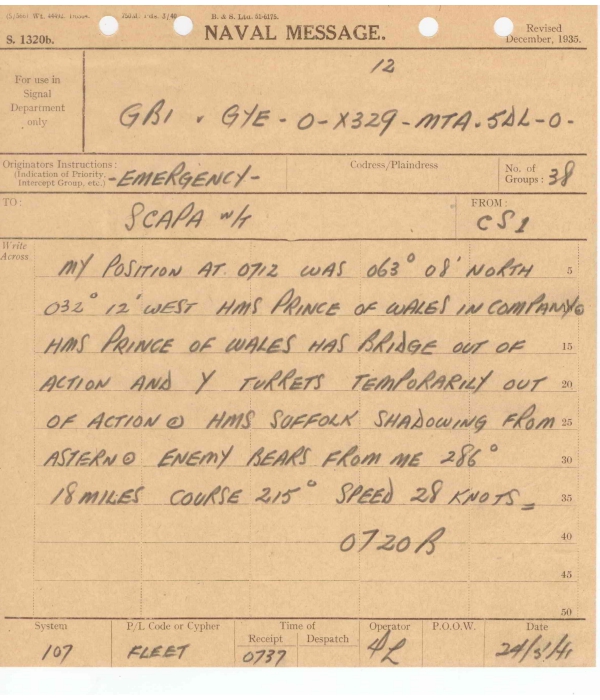 H. & S. Ltd.
NAVAL MESSAGE.
S. 1320b.
Revised
December, 1935.
For use in
Signal
Department
only
12
GBI v GYE - O - X329 - MTA. 5DL - O -
Originators Instructions:
(Indication of Priority,
Intercept Group, etc.)
-EMERGENCY-
Codress/Plaindress
No. of
Groups: 38
TO:
SCAPA W/T
FROM:
CS1
Write
Across
MY POSITION AT 0712 WAS 063° 08' NORTH 5
032° 12' WEST HMS PRINCE OF WALES IN COMPANY⊙
HMS PRINCE OF WALES HAS BRIDGE OUT OF 15
ACTION AND Y TURRETS TEMPORARILY OUT 20
OF ACTION⊙ HMS SUFFOLK SHADOWING FROM 25
ASTERN⊙ ENEMY BEARS FROM ME 286° 30
18 MILES COURSE 215° SPEED 28 KNOTS = 35
0720B 40
45
50
System P/L Code or Cypher Time of Operator P.O.O.W. Date
Receipt Despatch
107 FLEET 0737 24/5/41